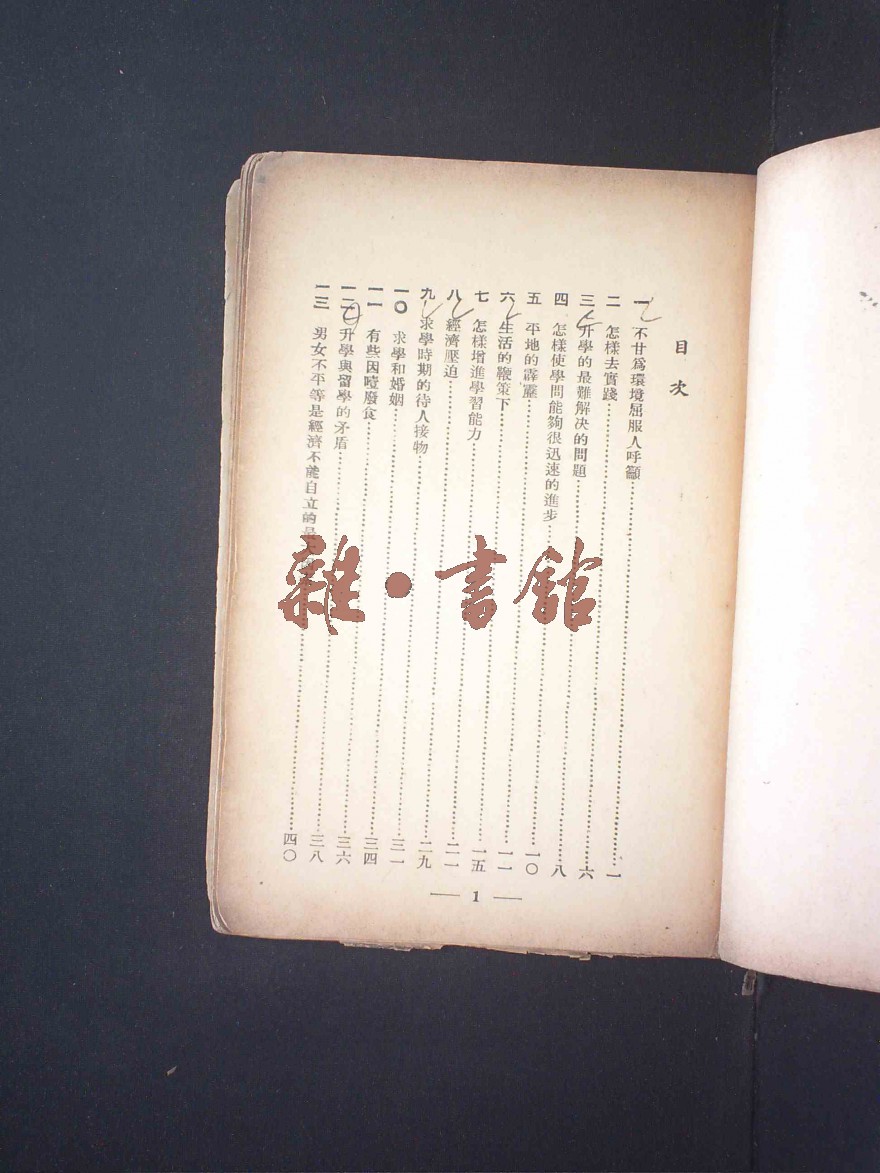 目次
一 不甘爲環境屈服人呼籲……一
二 怎樣去實踐……六
三 升學的最難解決的問題……八
四 怎樣使學問能夠很迅速的進步……一〇
五 平地的霹靂……一一
六 生活的鞭策下……一五
七 怎樣增進學習能力……二一
八 經濟壓迫……二九
九 求學時期的待人接物……三一
一〇 求學和婚姻……三四
一一 有些因噎廢食……三六
一二 升學與留學的矛盾……三八
一三 男女不平等是經濟不能自立的……四〇
— 1 —
雜•書館